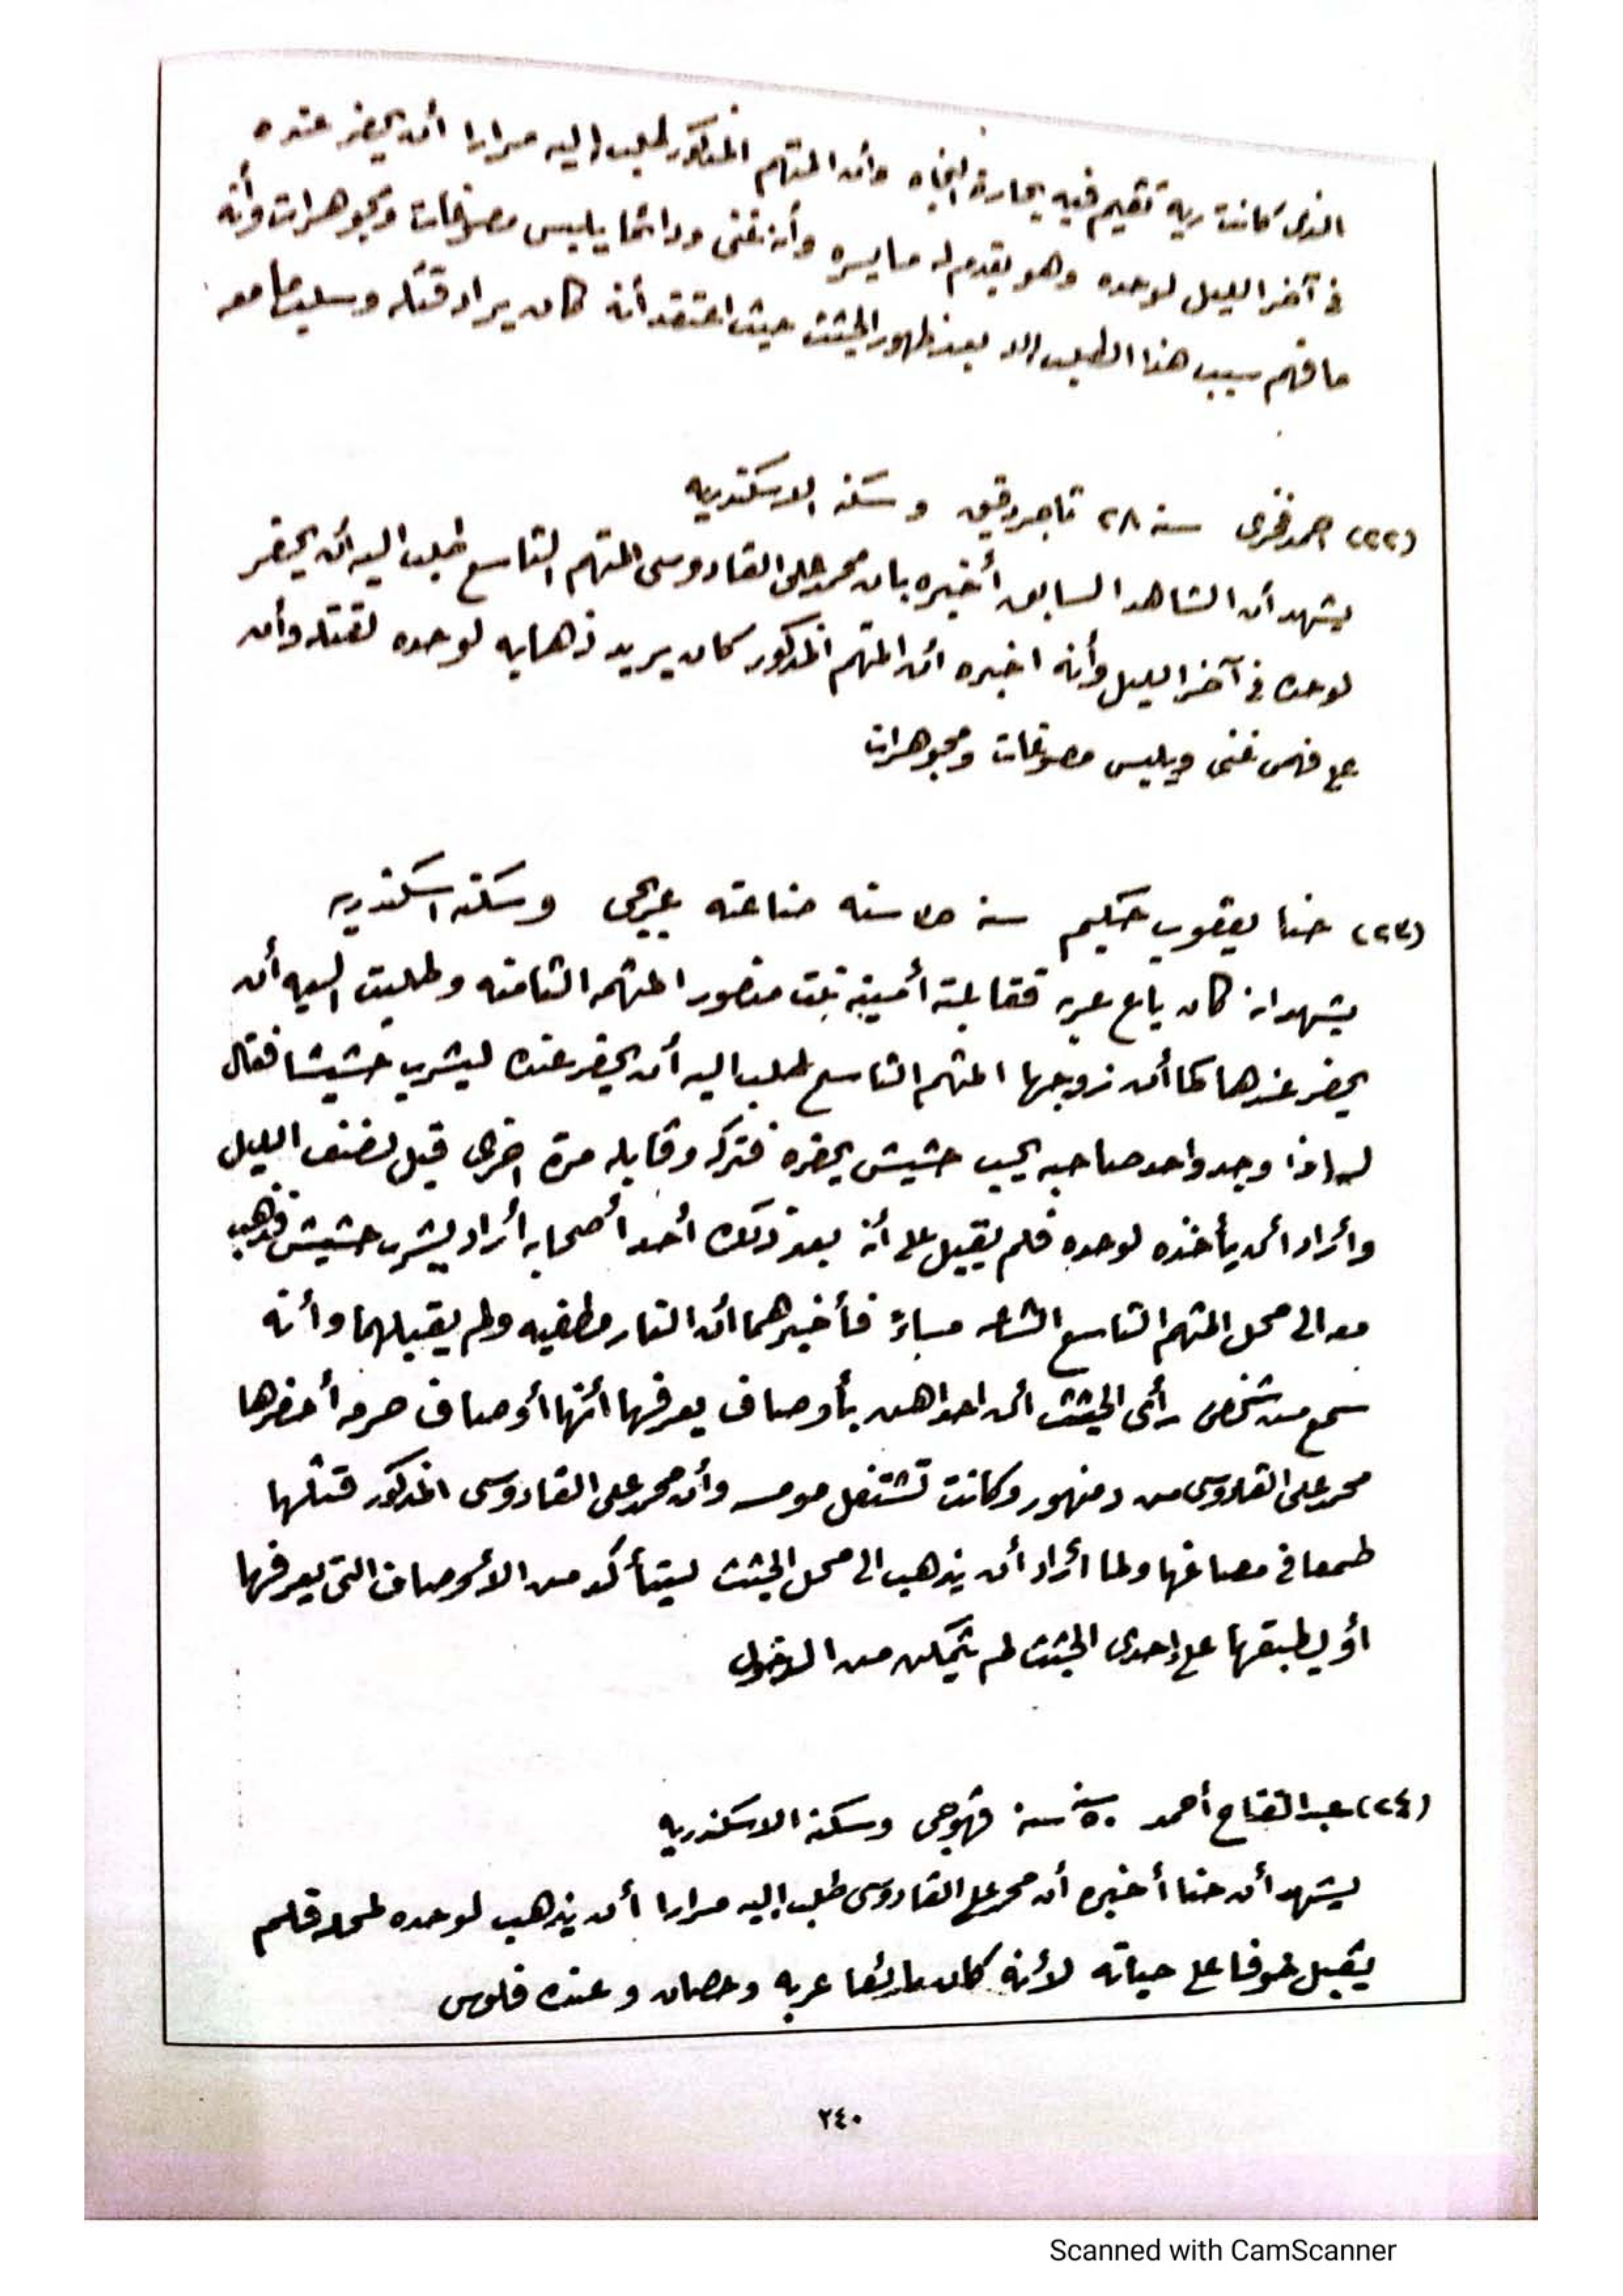 الذى كانت ريه تقيم فيه بحارة النجاه وأن المتهم المذكور طلب اليه مرارا أن يحضر عنده
فى آخر الليل لوحده وهو يقدم له ما يسره وأنه غنى ودائما يلبس مصوغات ومجوهرات وأنه
ما فهم سبب هذا الطلب الا بعد ظهور الجثث حيث اعتقد أنه كان يراد قتله وسلب ما معه
(٢٢) احمد فخرى سنه ٢٨ تاجر دقيق وسكنه الاسكندريه
يشهد أن الشاهد السابق أخبره بان محمد على القادوسى المتهم التاسع طلب اليه أن يحضر
لوحده فى آخر الليل وأنه اخبره أن المتهم المذكور كان يريد ذهابه لوحده لقتله وأن
على فهمى غنى ويلبس مصوغات ومجوهرات
(٢٣) حنا يعقوب حكيم سنه ٣٥ سنه صناعته عربجى وسكنه اسكندريه
يشهد انه كان باع عربه فقابلته أمينه بنت منصور المتهمه الثامنه وطلبت اليه أن
يحضر عندها كما أن زوجها المتهم التاسع طلب اليه أن يحضر عنده ليشرب حشيشا فقال
له اذا وجد واحد صاحبه يحب حشيش يحضره فتركه وقابله مرة اخرى قبل نصف الليل
وأراد أن يأخذه لوحده فلم يقبل على أنه بعد ذلك أحد أصحابه أراد يشرب حشيش فذهب
معه الى محل المتهم التاسع الساعه مساءً فأخبرهما أن النار مطفيه ولم يقبلهما وأنه
سمع من شخص رأى الجثث أن احداهن بأوصاف يعرفها أنها أوصاف حرمه أحضرها
محمد على القادوسى من دمنهور وكانت تشتغل مومسه وأن محمد على القادوسى المذكور قتلها
طمعا فى مصاغها ولما أراد أن يذهب الى محل الجثث ليتأكد من الأوصاف التى يعرفها
أو يطبقها على إحدى الجثث لم يتمكن من الدخول
(٢٤) عبد الفتاح أحمد ٥٠ سنه قهوجى وسكنه الاسكندريه
يشهد أن حنا أخبره أن محمد على القادوسى طلب إليه مرارا أن يذهب لوحده لمحله فلم
يقبل خوفا على حياته لأنه كان بائعا عربه وحصان وعنده فلوس
٢٤٠
Scanned with CamScanner